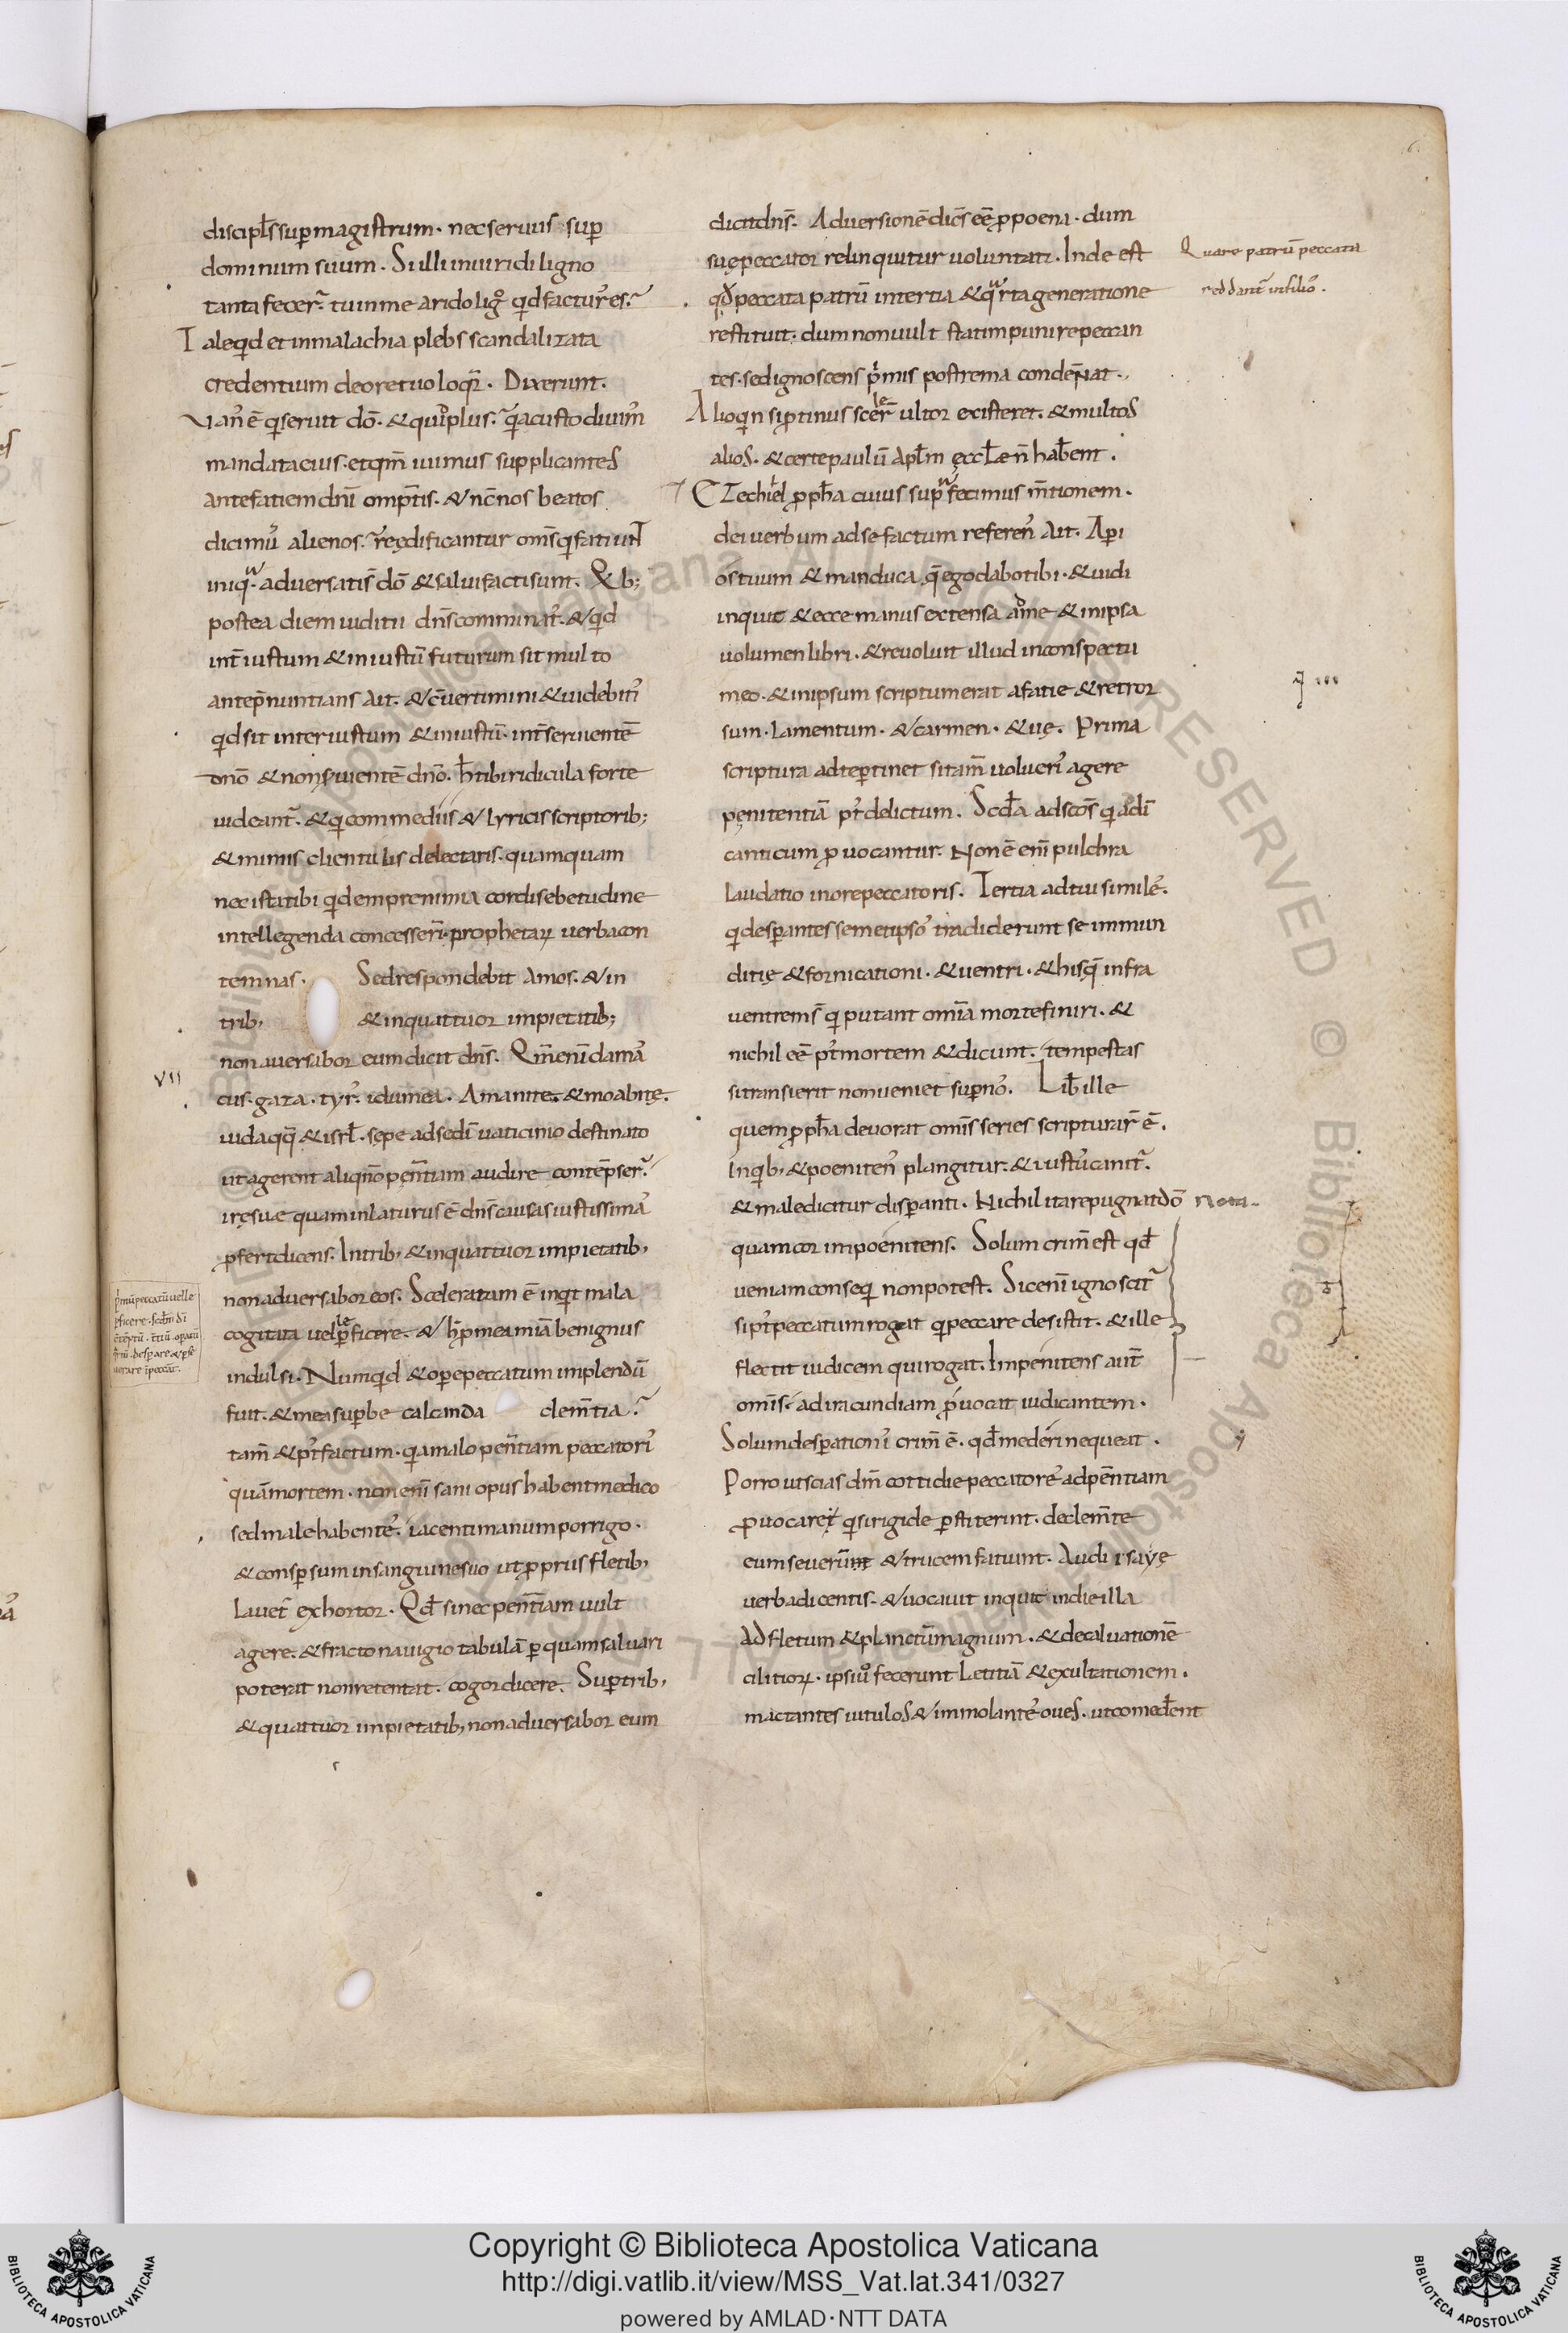 discipl̄s sup magistrum· nec seruus sup
dominum suum· Si illi in uiridi ligno
tanta fecer̄· tu in me arido ligº qd facturꝰ es?
Tale qd et in malachia plebs scandalizata
credentium deo retuo loqr̄· Dixerunt·
mandata eius· et qm̄ iuimus supplicantes
ante fatiem dn̄i omp̄tis· & nc̄ nos beatos
dicimꝰ alienos· reędificantur oms̄ qi fatiunt
iniq· aduersatis̄ dō & salui facti sunt· Q b;
postea diem iuditii dn̄s comminat̄· & qd
int̄ iustum & iniustū futurum sit multo
ante p̄nuntians ait· & c̄uertimini & uidebitꝰ
qd sit inter iustum & iniustū· int̄ seruientē
dn̄o & non seruientē dn̄o· h̄ tibi ridicula forte
uideant̄· & qi commediis & lyricis scriptorib;
& mimis clientulis delectaris· quamquam
nec ista tibi qdem pre nimia cordis ebetudine
intellegenda concesserī· prophetaꝝ uerba con
temnas· Sed respondebit Amos· & in
trib; & in quattuor impietatib;
non auersabor eum dicit dn̄s· Qm̄ enī damaꝰ
cus· gaza· tyrꝰ· idumea· Amanitę· & moabitę·
iuda qq̄ & isrl̄· sępe ad se dī uaticinio destinato
ut agerent aliqn̄o pęn̄tiam audire contēpser̄·
irę suę quam inlaturus ē dn̄s causas iustissimaꝰ
pfert dicens· In trib; & in quattuor impietatib;
non aduersabor eos· Sceleratum ē inqit mala
cogitata uelle pficere· & h̄ p mea mīa benignus
indulsi· Numqd & ope peccatum implendū
fuit· & mea supbe calcanda clem̄tia?
tam̄ & p̄t factum· qi a malo pen̄tiam peccatoris
quā mortem· non enī sani opus habent medico
sed male habentē· iacenti manum porrigo·
& conspsum in sanguine suo ut propriis fletib;
lauet̄ exhortor· Qd̄ si nec pen̄tiam uult
agere· & fracto nauigio tabulā p quam saluari
poterat non retentat· cogor dicere· Sup trib;
& quattuor impietatib; non aduersabor eum
VII
dicit dn̄s· Aduersionē dic̄s eē p poena· dum
suę peccator relinquitur uoluntati· Inde est
qd̄ peccata patrū in tertia & qarta generatione
restituit· dum non uult statim punire peccan
tes· sed ignoscens p̄mis postrema condēnat·
Alioqin si ptinus scelerū ultor existeret· & multos
alios· & certe paulū apl̄m ęccl̄ę n̄ hab̄ent·
Ezechiel ppħa cuius supra fecimus m̄tionem·
dei uerbum ad se factum referenꝰ Ait· Api
os tuum & manduca quę ego dabo tibi· & uidi
inquit & ecce manus extensa ad me & in ipsa
uolumen libri· & reuoluit illud in conspectu
meo· & in ipsum scriptum erat a fatie & retror
sum· Lamentum· & carmen· & uę· Prima
scriptura ad te ptinet si tam̄ uoluerꝰ agere
pęnitentiā p̄t delictum· Scd̄a ad scōs qi ad dī
canticum puocantur· Non ē enī pulchra
laudatio in ore peccatoris· Tertia ad tui similēꝰ·
qi despantes semetipsoꝰ tradiderunt se immun
ditię & fornicationi· & uentri· & his qę infra
uentrem s̄ qi putant omīa morte finiri· &
nichil eē p̄t mortem & dicunt· tempestas
si transierit non ueniet sup noꝰ· Lib̄ ille
quem ppħa deuorat omīs series scripturar̄ ē·
In qib; & poenitenꝰ plangitur· & iustꝰ canit̄·
& maledicitur dispanti· Nichil ita repugnat dō
quam cor impoenitens· Solum crim̄ est qd̄
ueniam conseqi non potest· Si enī ignoscit̄
si p̄t peccatum rogat qi peccare desistit· & ille
flectit iudicem qui rogat· Impenitens aut̄
omīs· ad iracundiam puocat iudicantem·
Solum despationis crim̄ ē· qd̄ mederi nequeat·
Porro ut scias dm̄ cottidie peccatorēꝰ ad pēntiam
puocare· qi si rigide pstiterint· de clem̄te
eum seuerum & trucem fatiunt· Audi isayę
uerba dicentis· & uocauit inquit in die illa
Ad fletum & planctū magnum· & decaluationē
cilitioꝝ· ipsi uº fecerunt letitiā & exultationem·
mactantes uitulos & immolantēꝰ oues· ut comed̄ent
Quare patrū peccata
reddant̄ in filioꝰ·
Nota
6
Copyright © Biblioteca Apostolica Vaticana
http://digi.vatlib.it/view/MSS_Vat.lat.341/0327
powered by AMLAD·NTT DATA
BIBLIOTECA APOSTOLICA VATICANA
BIBLIOTECA APOSTOLICA VATICANA